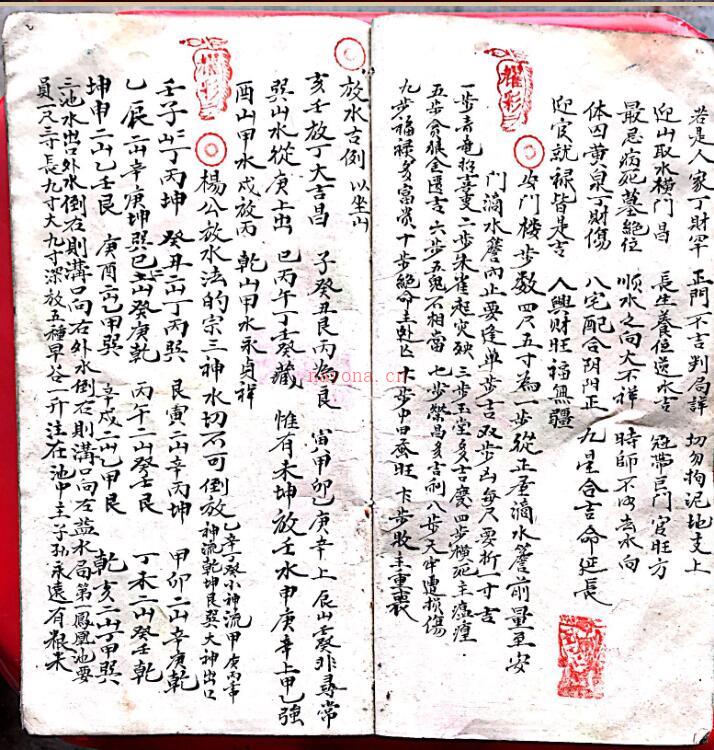 若是人家丁財罕 正門不吉判局詳 切勿拘泥地支上
迎山取水橫門昌 長生養位送水吉 冠帶巨門官旺方
最忌病死墓絕位 順水之向大不祥 時師不明去水向
体囚黃泉丁財傷 八宅配合陰陽正 九星合吉命延長
迎官就祿皆是吉 人興財旺福無疆
耀彩
安門楼步数 四尺五寸為一步從正屋滴水簷前量至安
門滴水簷內止要逢單步吉双步凶每尺要折一寸吉
一步青竜招喜重 二步朱雀起災殃 三步玉堂多吉慶 四步橫死主瘟瘟
五步貪狼金匱吉 六步五鬼不相當 七步榮昌多吉利 八步天牢遭損傷
九步福祿多富貴 十步絕命主 步中田蚕旺 步敗主重喪
放水吉倒 以坐山
亥壬放丁大吉昌 子癸丑艮丙為良 寅甲卯乙庚辛上 辰山壬癸非尋常
巽山水從庚上出 巳丙午丁壬癸藏 惟有未坤放壬水 申庚辛上甲乙強
酉山甲水戍放丙 乾山甲水永貞祥
耀彩
楊公放水法的宗三神水切不可倒放 乙辛丁癸小神流甲庚丙壬中
神流乾坤艮巽大神出口
壬子二山丁丙坤 癸丑二山丁丙巽 艮寅二山辛丙坤 甲卯二山辛庚乾
乙辰二山辛庚坤 巽巳二山癸庚乾 丙午二山癸壬艮 丁未二山癸壬乾
坤申二山乙壬艮 庚酉二山乙甲巽 辛戍二山乙甲艮 乾亥二山丁甲巽
三池水出外水倒右則溝口向右外水倒左則溝口向左益水局第一鳳凰池要
員一尺三寸長九寸大九寸深放五種早谷一升注在池中主子孫永遠有粮米
novona.cn